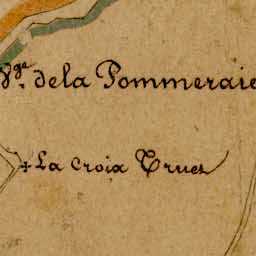 Vge. de la Pommeraie
La Croix Truel